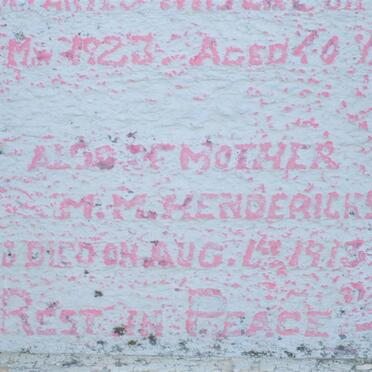 M 1923. AGED 40
ALSO OF MOTHER
M.M. HENDERICKS
DIED ON AUG. 1st 1913
REST IN PEACE